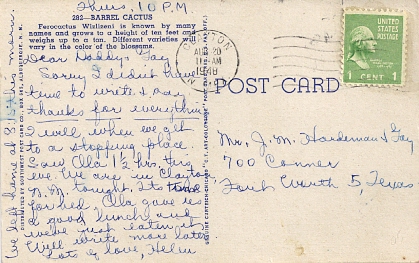 Thurs, 10 P.M.
282—BARREL CACTUS
Ferocactus Wislizeni is known by many
names and grows to a height of ten feet and
weighs up to a ton. Different varieties will
vary in the color of the blossoms.
Dear Daddy & Gay
Sorry I didn't have
time to write & say
thanks for everything.
I will, when we get
to a stopping place.
Saw Olla 1½ hrs. this
eve. We are in Clayton
N. M. tonight. Its time
for bed. Olla gave us
a good lunch and
we've just eaten it.
Will write more later
Lots of love, Helen
We left home at 8:15 this morn.
CLAYTON
AUG 20
11 AM
1948
N. MEX.
UNITED STATES
POSTAGE
1 CENT 1
POST CARD
Mr. J. M. Hardeman & Gay
700 Conner
Forth Worth 5 Texas
DISTRIBUTED BY SOUTHWEST POST CARD CO., BOX 685, ALBUQUERQUE, N. M.